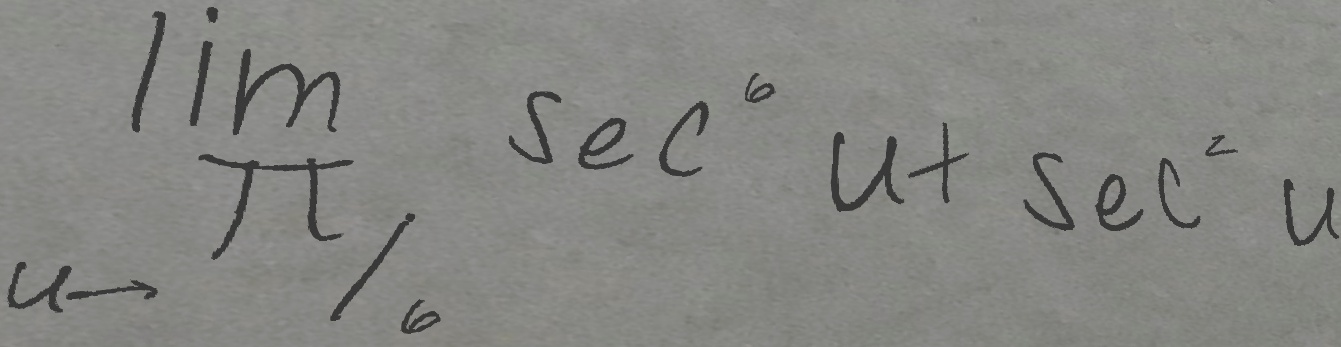 lim u→π/6 sec⁶ u + sec² u